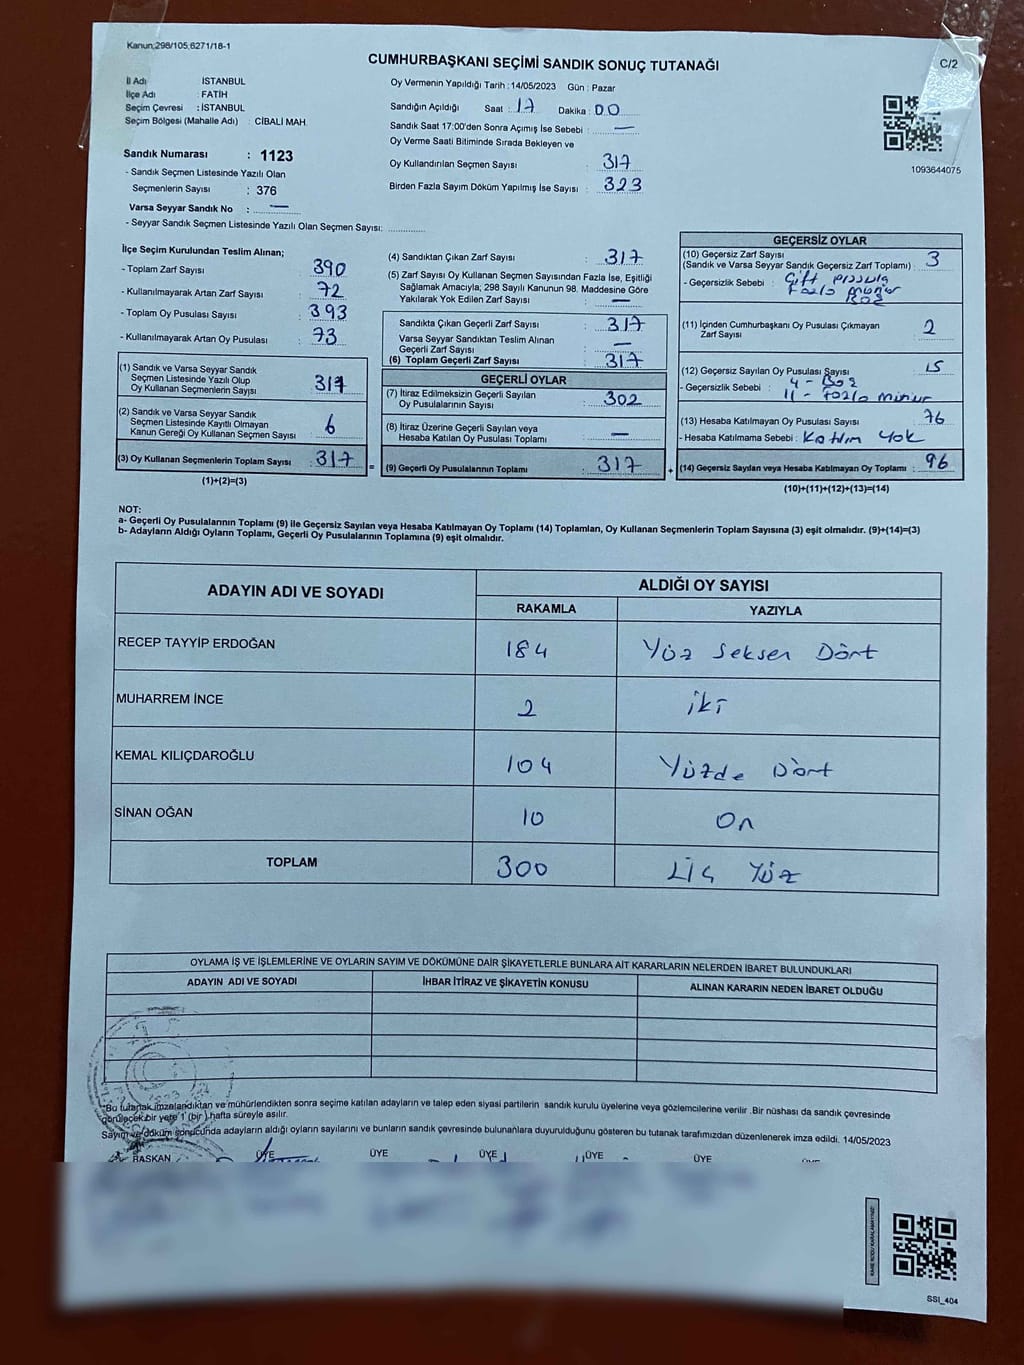 Kanun;298/105;6271/18-1
C/2
CUMHURBAŞKANI SEÇİMİ SANDIK SONUÇ TUTANAĞI
İl Adı İSTANBUL
İlçe Adı : FATİH
Seçim Çevresi : İSTANBUL
Seçim Bölgesi (Mahalle Adı) : CİBALİ MAH.
Sandık Numarası : 1123
- Sandık Seçmen Listesinde Yazılı Olan
Seçmenlerin Sayısı : 376
Varsa Seyyar Sandık No : —
- Seyyar Sandık Seçmen Listesinde Yazılı Olan Seçmen Sayısı: ............
Oy Vermenin Yapıldığı Tarih : 14/05/2023 Gün : Pazar
Sandığın Açıldığı Saat : 17 Dakika : 00
Sandık Saat 17:00'den Sonra Açımış İse Sebebi : —
Oy Verme Saati Bitiminde Sırada Bekleyen ve
Oy Kullandırılan Seçmen Sayısı : 317
Birden Fazla Sayım Döküm Yapılmış İse Sayısı : 323
1093644075
İlçe Seçim Kurulundan Teslim Alınan;
- Toplam Zarf Sayısı : 390
- Kullanılmayarak Artan Zarf Sayısı : 72
- Toplam Oy Pusulası Sayısı : 393
- Kullanılmayarak Artan Oy Pusulası : 73
(1) Sandık ve Varsa Seyyar Sandık
Seçmen Listesinde Yazılı Olup
Oy Kullanan Seçmenlerin Sayısı : 317
(2) Sandık ve Varsa Seyyar Sandık
Seçmen Listesinde Kayıtlı Olmayan
Kanun Gereği Oy Kullanan Seçmen Sayısı : 6
(3) Oy Kullanan Seçmenlerin Toplam Sayısı : 317
(1)+(2)=(3)
(4) Sandıktan Çıkan Zarf Sayısı : 317
(5) Zarf Sayısı Oy Kullanan Seçmen Sayısından Fazla İse, Eşitliği
Sağlamak Amacıyla; 298 Sayılı Kanunun 98. Maddesine Göre
Yakılarak Yok Edilen Zarf Sayısı : —
Sandıkta Çıkan Geçerli Zarf Sayısı : 317
Varsa Seyyar Sandıktan Teslim Alınan
Geçerli Zarf Sayısı : —
(6) Toplam Geçerli Zarf Sayısı : 317
GEÇERLİ OYLAR
(7) İtiraz Edilmeksizin Geçerli Sayılan
Oy Pusulalarının Sayısı : 302
(8) İtiraz Üzerine Geçerli Sayılan veya
Hesaba Katılan Oy Pusulası Toplamı : —
= (9) Geçerli Oy Pusulalarının Toplamı : 317 +
GEÇERSİZ OYLAR
(10) Geçersiz Zarf Sayısı
(Sandık ve Varsa Seyyar Sandık Geçersiz Zarf Toplamı) : 3
- Geçersizlik Sebebi : Çift pusula
Fazla mühür
Boş
(11) İçinden Cumhurbaşkanı Oy Pusulası Çıkmayan
Zarf Sayısı : 2
(12) Geçersiz Sayılan Oy Pusulası Sayısı : 15
- Geçersizlik Sebebi : 4 - Boş
11 - Fazla mühür
(13) Hesaba Katılmayan Oy Pusulası Sayısı : 76
- Hesaba Katılmama Sebebi : Katılım Yok
(14) Geçersiz Sayılan veya Hesaba Katılmayan Oy Toplamı : 96
(10)+(11)+(12)+(13)=(14)
NOT:
a- Geçerli Oy Pusulalarının Toplamı (9) ile Geçersiz Sayılan veya Hesaba Katılmayan Oy Toplamı (14) Toplamları, Oy Kullanan Seçmenlerin Toplam Sayısına (3) eşit olmalıdır. (9)+(14)=(3)
b- Adayların Aldığı Oyların Toplamı, Geçerli Oy Pusulalarının Toplamına (9) eşit olmalıdır.
ADAYIN ADI VE SOYADI ALDIĞI OY SAYISI
RAKAMLA YAZIYLA
RECEP TAYYİP ERDOĞAN 184 Yüz Seksen Dört
MUHARREM İNCE 2 iki
KEMAL KILIÇDAROĞLU 104 Yüzde Dört
SİNAN OĞAN 10 On
TOPLAM 300 Üç Yüz
OYLAMA İŞ VE İŞLEMLERİNE VE OYLARIN SAYIM VE DÖKÜMÜNE DAİR ŞİKAYETLERLE BUNLARA AİT KARARLARIN NELERDEN İBARET BULUNDUKLARI
ADAYIN ADI VE SOYADI İHBAR İTİRAZ VE ŞİKAYETİN KONUSU ALINAN KARARIN NEDEN İBARET OLDUĞU
"Bu tutanak imzalandıktan ve mühürlendikten sonra seçime katılan adayların ve talep eden siyasi partilerin sandık kurulu üyelerine veya gözlemcilerine verilir .Bir nüshası da sandık çevresinde
görülecek bir yere 1 (bir ) hafta süreyle asılır.
Sayım ve döküm sonucunda adayların aldığı oyların sayılarını ve bunların sandık çevresinde bulunanlara duyurulduğunu gösteren bu tutanak tarafımızdan düzenlenerek imza edildi. 14/05/2023
BAŞKAN ÜYE ÜYE ÜYE ÜYE ÜYE
SSI_404